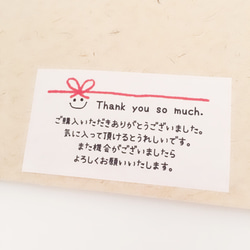 Thank you so much.
ご購入いただきありがとうございました。
気に入って頂けるとうれしいです。
また機会がございましたら
よろしくお願いいたします。